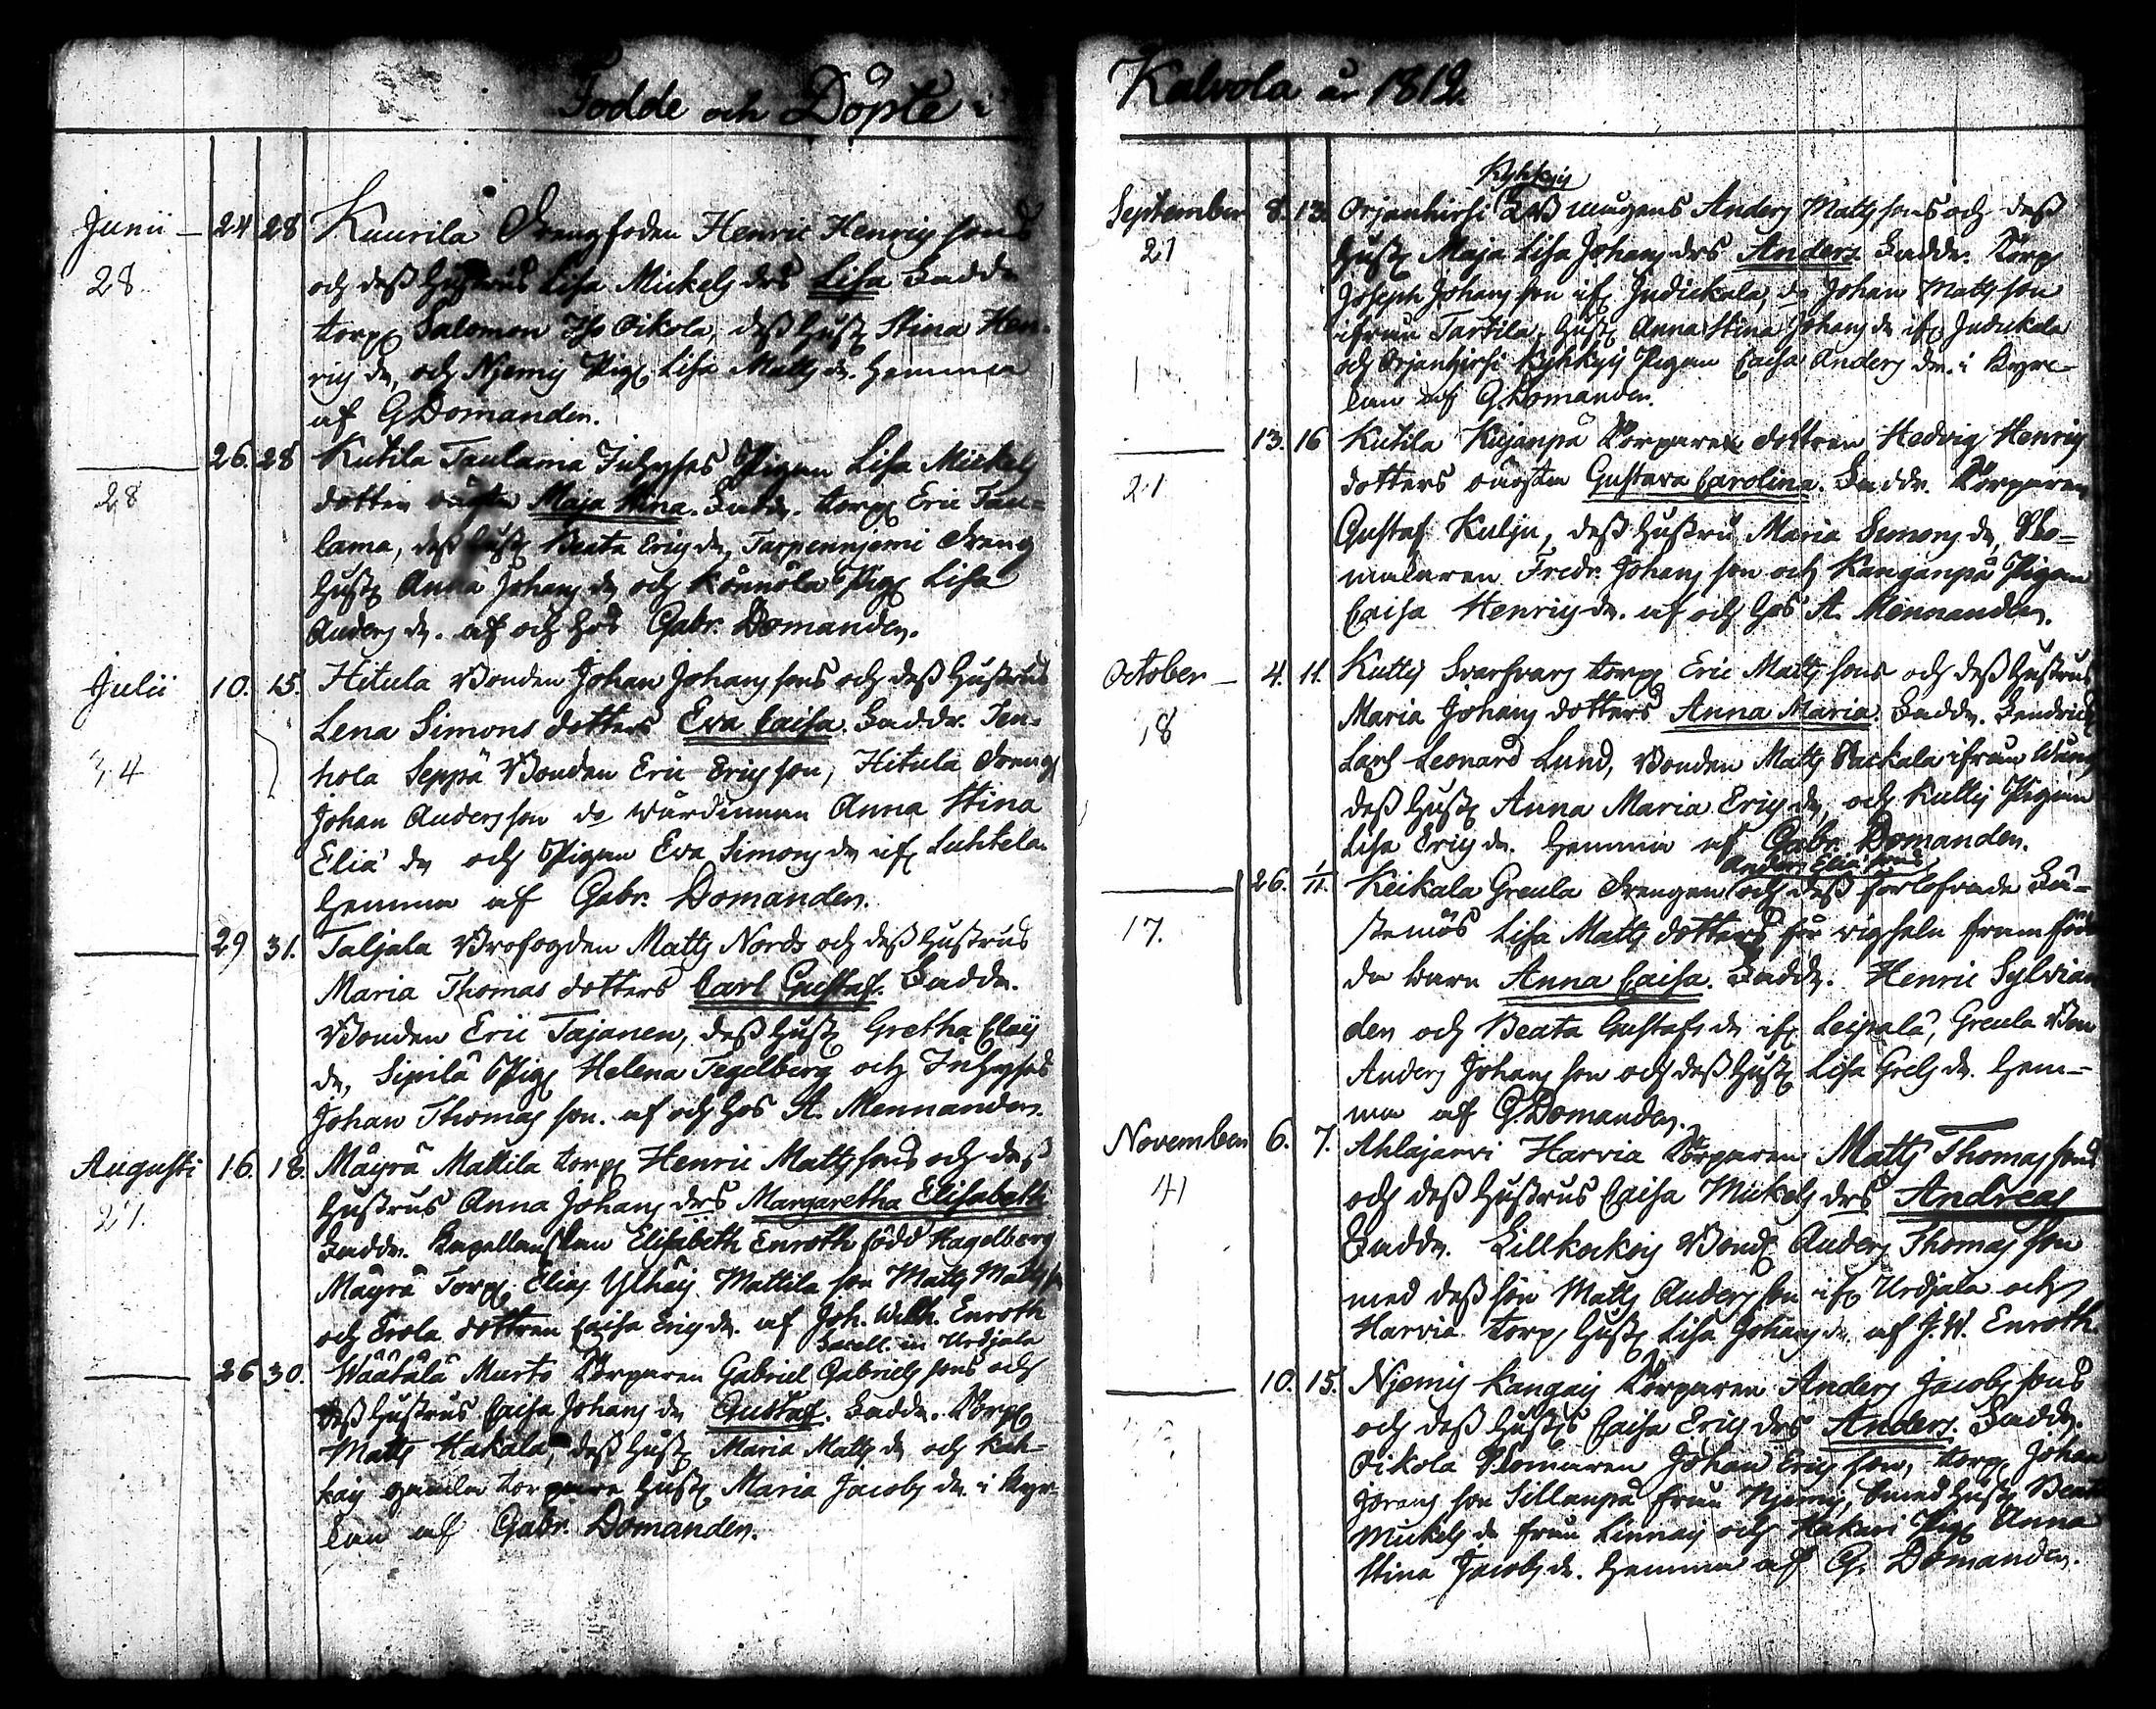 Födde och Döpte i
Junii — 24 28 Kuurila Drengfoden Henric Henrics sons
28. och dess hustrus Lisa Mickels drs Lisa Fadd.
torp. Salomon Oikola, dess hust. Stina Hen-
rics dr, och Njemis Pig. Lisa Matts dr. hemma
af G Domander.
26. 28 Kutila Taulama Inhyses Pigan Lisa Mickels
28 dotter Maja Stina. Fadd. torp. Eric Tau-
lama, dess hust. Beata Erics dr, Tarpennjemi Dreng
hust. Anna Johans dr och Könnölä Pig. Lisa
Anders dr. af och hos Gabr. Domander.
Julii 10. 15. Hitula Bonden Johan Johans sons och dess hustrus
Lena Simons dotters Eva Caisa. Faddr. Ten-
34 hola Seppä Bonden Eric Erics son, Hitula Dreng
Johan Anders son do wärdinnan Anna Stina
Eliæ dr och Pigan Eva Simons dr if. Luhtela.
hemma af Gabr. Domander.
29 31. Taljala Brofogden Matts Nords och dess hustrus
Maria Thomas dotters Carl Gustaf. Fadd.
Bonden Eric Tajanen, dess hust. Gretha Clas
dr, Sipilä Pig. Helena Tegelberg och Inhyses
Johan Thomas son. af och hos A. Mennander.
Augusti 16. 18. Mäyrä Mattila torp. Henric Matts sons och dess
27. hustrus Anna Johans drs Margaretha Elisabeth
Faddr. Capellanskan Elisabeth Enroth född Hagelberg
Mäyrä Torp. Elias Ylhäis Mattila son Matts Matts s.
och Erola dottren Caisa Erics dr. af Joh. Wilh. Enroth
Sacell. in Urdjala
26 30. Wäätälä Murto Torparen Gabriel Gabriels sons och
dess hustrus Caisa Johans dr Gustaf. Fadd. Torp.
Matts Hakala, dess hust. Maria Matts dr och Kah-
kais gamla torpare hust. Maria Jacobs dr i Kyr-
kan af Gabr. Domander.
Kalvola år 1812.
Kyhkyis
September 8. 13. Orjanhirsi Anders Matts sons och dess
21 hust. Maja Lisa Johans drs Anders Fadd. Torp.
Joseph Johans son if. Indickala, do Johan Matts son
ifrån Tartila, hust. Anna Stina Johans dr if. Indickala
och Orjanhirsi Kyhkyis Pigan Caisa Anders dr. i Kyrc-
kan af G. Domander.
13. 16 Kutila Kujanpä Torpare dottren Hedvig Henrics
21 dotters oäkta Gustava Carolina. Faddr. Torparen
Gustaf Kulju, dess hustru Maria Simons dr, Sko-
makaren Fredr. Johans son och Kanganpä Pigan
Caisa Henrics dr. af och hos A. Mennander.
October — 4. 11. Kuttis Svarfvars torp. Eric Matts sons och dess hustrus
18 Maria Johans dotters Anna Maria. Fadd. Fendrick
Lars Leonard Lund, Bonden Matts Sackala ifrån Wång
dess hust. Anna Maria Erics dr, och Kuttis Pigan
Lisa Erics dr. hemma af Gabr. Domander.
Anders Eliæ sons
26. 1/11. Keikala Greula Drengen och dess förlofvade Fä-
17. stemös Lisa Matts dotters för wigseln framföd-
da barn Anna Caisa. Fadd. Henric Sylvian-
der och Beata Gustafs dr if. Leipälä, Greula Bon.
Anders Johans son och dess hust. Lisa Grels dr. hem-
ma af G. Domander.
November 6. 7. Ahlajärvi Harvia Torparen Matts Thomas sons
41 och dess hustrus Caisa Mickels drs Andreas
Fadd. Lillkockois Bond. Anders Thomas son
med dess son Matts Anders son if. Urdjala och
Harvia torp. hust. Lisa Johans dr. af J. W. Enroth.
10. 15. Njemis Kangais Torparen Anders Jacobs sons
och dess hustrs Caisa Erics drs Anders. Fadd.
Oikola Johan Erics son, torp. Johan
Jörans son Sillanpä från Njemis, smed hust. Beata
Mickels dr från Linnais och Hakari Pig. Anna
Stina Jacobs dr. hemma af G. Domander.